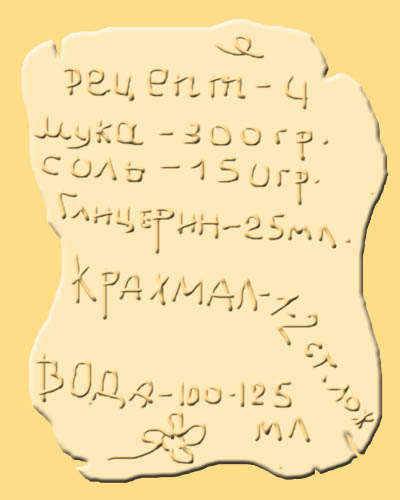 рецепт-4
мука-300гр.
соль-150гр.
Глицерин-25мл.
Крахмал-1.2 ст.лож
Вода-100-125
мл